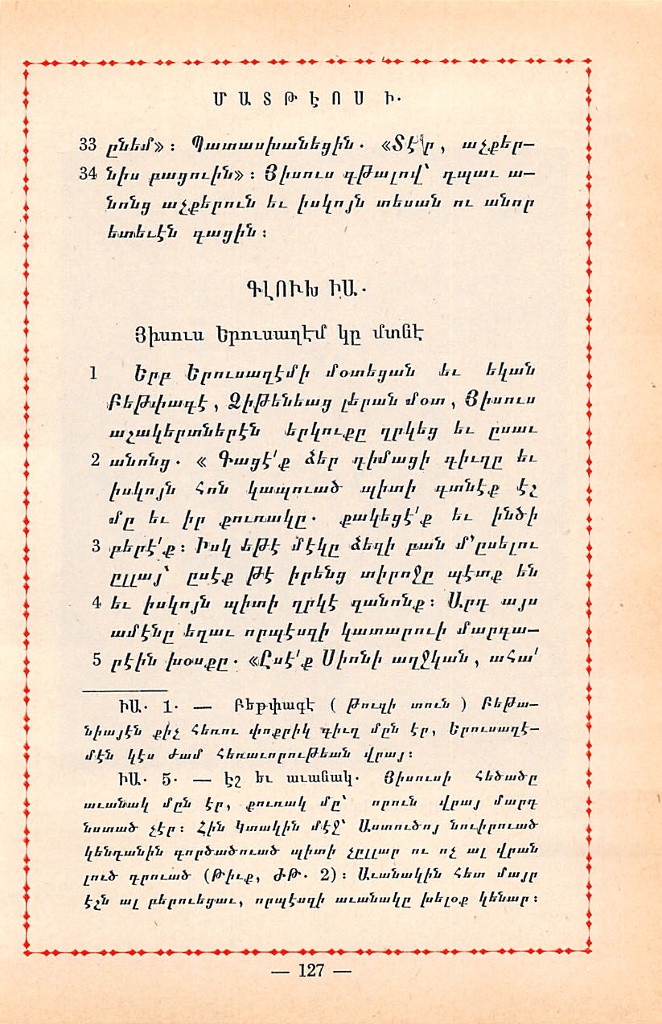 ՄԱՏԹԷՈՍ Ի.
33 ընեմ»։ Պատասխանեցին. «Տէ՛ր, աչքեր—
34 նիս բացուին»։ Յիսուս գթալով՝ դպաւ ա—
նոնց աչքերուն եւ իսկոյն տեսան ու անոր
ետեւէն գացին։
ԳԼՈՒԽ ԻԱ.
Յիսուս Երուսաղէմ կը մտնէ
1 Երբ Երուսաղէմի մօտեցան եւ եկան
Բեթփագէ, Ձիթենեաց լերան մօտ, Յիսուս
աշակերտներէն երկուքը ղրկեց եւ ըսաւ
2 անոնց. « Գացէ՛ք ձեր դիմացի գիւղը եւ
իսկոյն հոն կապուած պիտի գտնէք էշ
մը եւ իր քուռակը. քակեցէ՛ք եւ ինծի
3 բերէ՛ք։ Իսկ եթէ մէկը ձեզի բան մ՚ըսելու
ըլլայ՝ ըսէք թէ իրենց տիրոջը պէտք են
4 եւ իսկոյն պիտի ղրկէ զանոնք։ Արդ այս
ամէնը եղաւ որպէսզի կատարուի մարգա—
5 րէին խօսքը. «Ըսէ՛ք Սիոնի աղջկան, ահա՛
ԻԱ. 1. — Բեթփագէ ( Թուզի տուն ) Բեթա—
նիայէն քիչ հեռու փոքրիկ գիւղ մըն էր, Երուսաղէ—
մէն կէս ժամ հեռաւորութեան վրայ։
ԻԱ. 5. — Էշ եւ աւանակ. Յիսուսի հեծածը
աւանակ մըն էր, քուռակ մը՝ որուն վրայ մարդ
նստած չէր։ Հին Կտակին մէջ՝ Աստուծոյ նուիրուած
կենդանին գործածուած պիտի չըլլար ու ոչ ալ վրան
լուծ դրուած (Թիւք, ԺԹ. 2)։ Աւանակին հետ մայր
էշն ալ բերուեցաւ, որպէսզի աւանակը խելօք կենար։
— 127 —